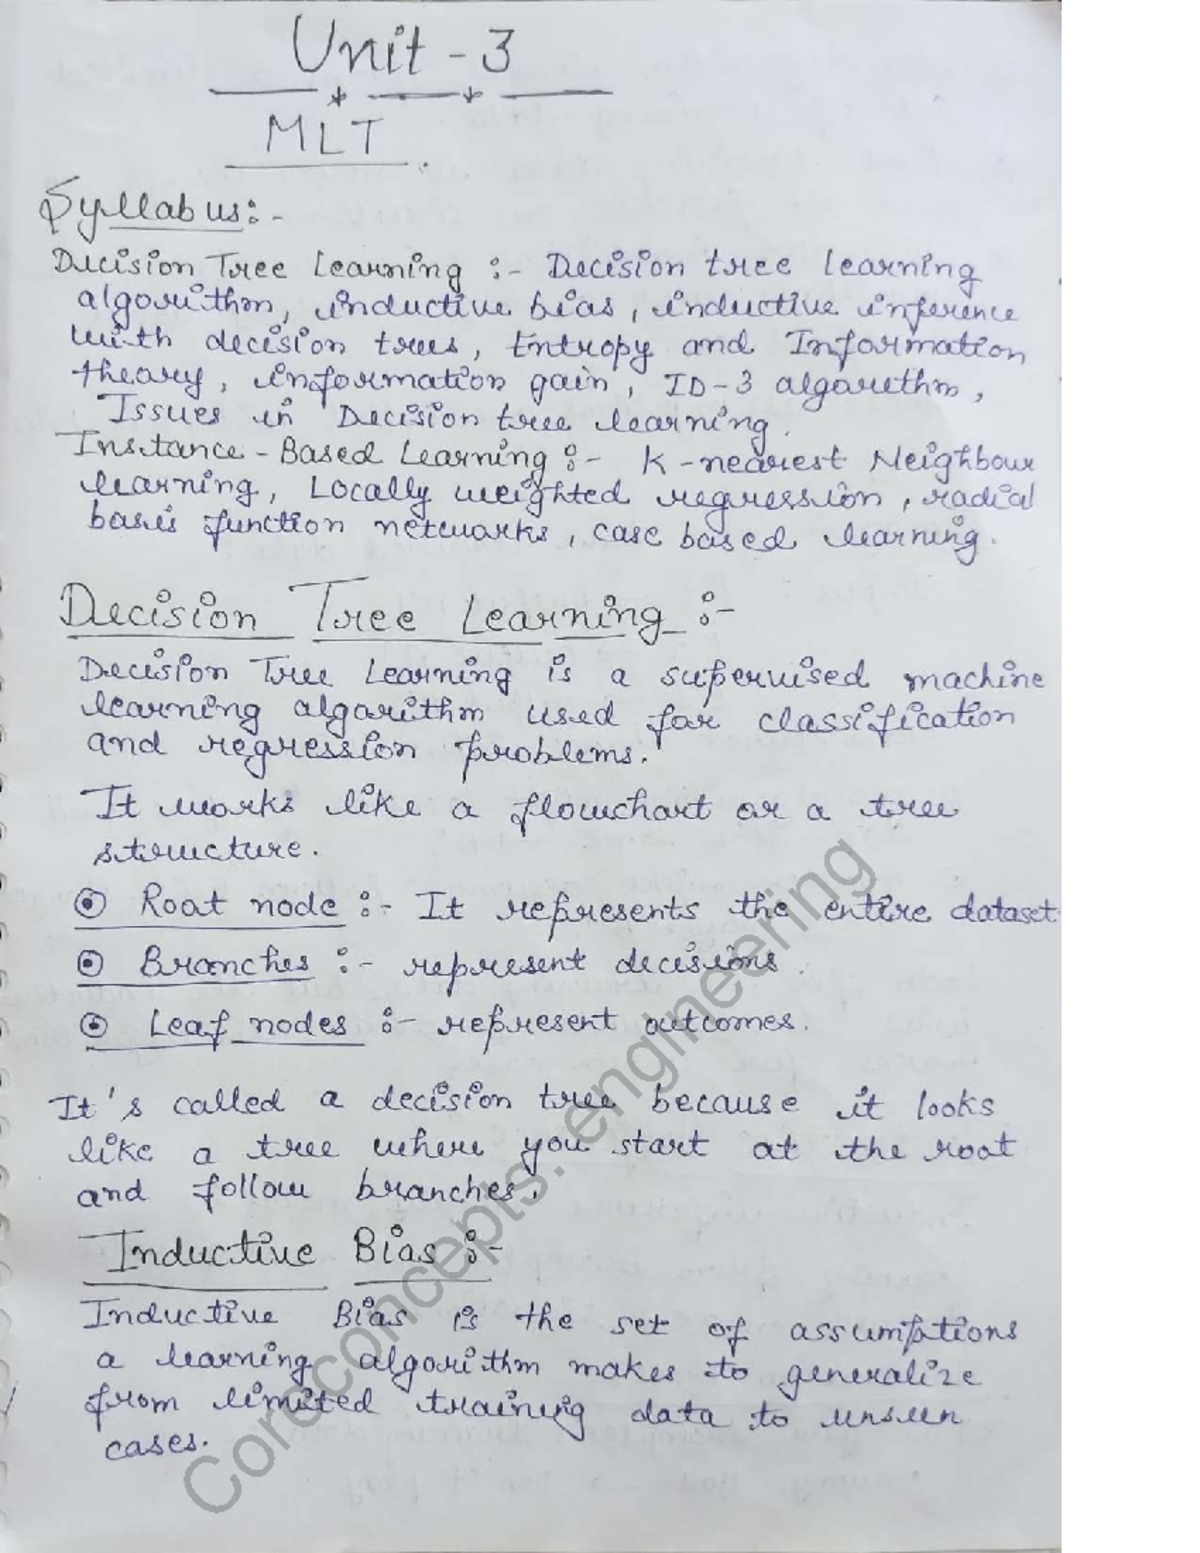 Unit - 3
MLT
Syllabus:-
Decision Tree Learning :- Decision tree learning
algorithm, inductive bias, inductive inference
with decision trees, Entropy and Information
theory, information gain, ID-3 algorithm,
Issues in Decision tree learning.
Instance-Based Learning :- K-nearest Neighbour
learning, Locally weighted regression, radial
basis function networks, case based learning.
Decision Tree Learning :-
Decision Tree Learning is a supervised machine
learning algorithm used for classification
and regression problems.
It works like a flowchart or a tree
structure.
⊙ Root node :- It represents the entire dataset
⊙ Branches :- represent decisions.
⊙ Leaf nodes :- represent outcomes.
It's called a decision tree because it looks
like a tree where you start at the root
and follow branches.
Inductive Bias :-
Inductive Bias is the set of assumptions
a learning algorithm makes to generalize
from limited training data to unseen
cases.
Coreconcepts.engineering